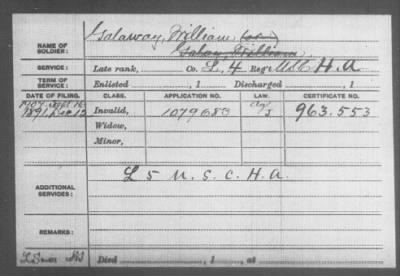 NAME OF SOLDIER: Galaway, William
Galoy, William
SERVICE: Late rank, Co. L, 4 Reg't U.S.C. H.A.
TERM OF SERVICE: Enlisted , 1 Discharged , 1
DATE OF FILING. CLASS. APPLICATION NO. LAW. CERTIFICATE NO.
1907 Sept 16
1891, Dec 12 Invalid, 1079683 963.553
Widow,
Minor,
ADDITIONAL SERVICES: L 5 U.S.C.H.A.
REMARKS:
Died , 1 , at